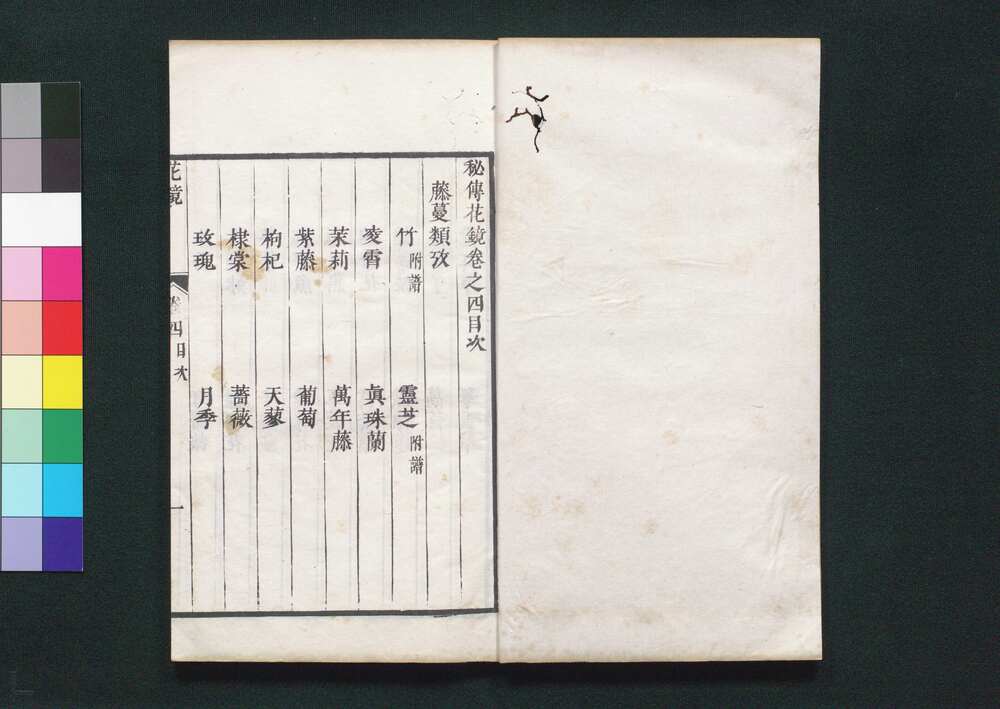 秘傳花鏡卷之四目次
藤蔓類攷
竹附譜 靈芝附譜
凌霄 真珠蘭
茉莉 萬年藤
紫藤 葡萄
枸杞 天蓼
棣棠 薔薇
玫瑰 月季
花鏡 卷四目次 一